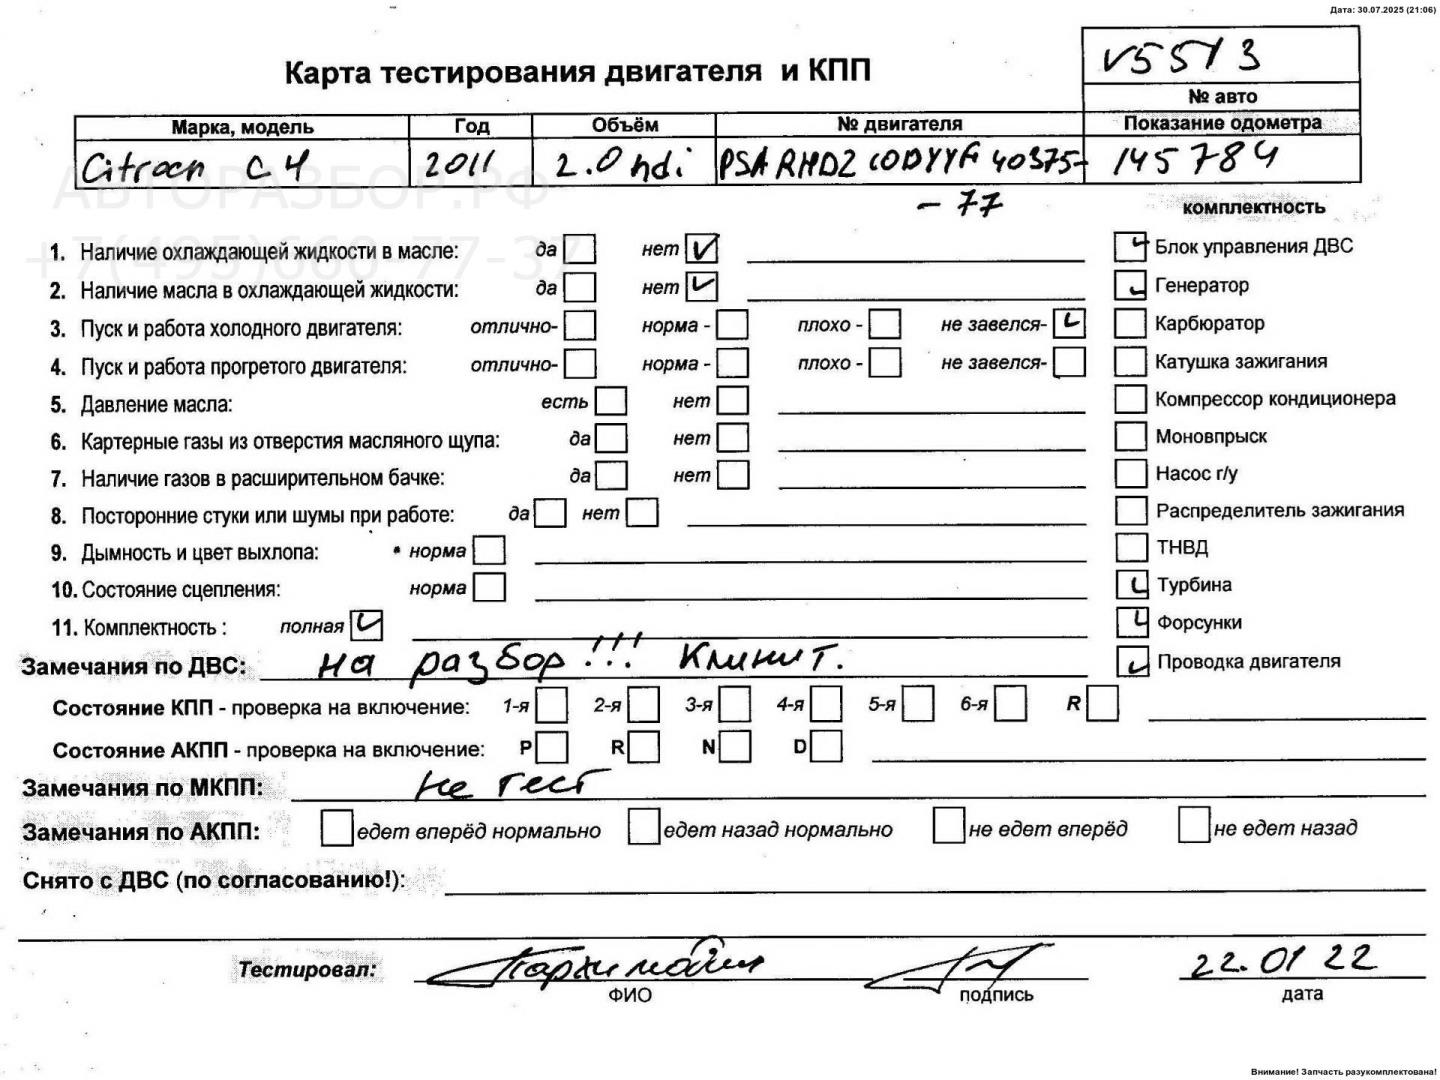 Дата: 30.07.2025 (21:06)
V5513
Карта тестирования двигателя и КПП
№ авто
Марка, модель Год Объём № двигателя Показание одометра
Citroen C4 2011 2.0 hdi PSA RHDZ 10DYYF 40375- 145784
- 77
АВТОРАЗБОР.РФ
+7(495)660-77-37
комплектность
1. Наличие охлаждающей жидкости в масле: да нет Блок управления ДВС
2. Наличие масла в охлаждающей жидкости: да нет Генератор
3. Пуск и работа холодного двигателя: отлично- норма - плохо - не завелся- Карбюратор
4. Пуск и работа прогретого двигателя: отлично- норма - плохо - не завелся- Катушка зажигания
5. Давление масла: есть нет Компрессор кондиционера
6. Картерные газы из отверстия масляного щупа: да нет Моновпрыск
7. Наличие газов в расширительном бачке: да нет Насос г/у
8. Посторонние стуки или шумы при работе: да нет Распределитель зажигания
9. Дымность и цвет выхлопа: норма ТНВД
10. Состояние сцепления: норма Турбина
11. Комплектность : полная Форсунки
Замечания по ДВС: на разбор!!! Клинит. Проводка двигателя
Состояние КПП - проверка на включение: 1-я 2-я 3-я 4-я 5-я 6-я R
Состояние АКПП - проверка на включение: P R N D
Замечания по МКПП: не тест
Замечания по АКПП: едет вперёд нормально едет назад нормально не едет вперёд не едет назад
Снято с ДВС (по согласованию!):
Тестировал: 22.01 22
ФИО подпись дата
Внимание! Запчасть разукомплектована!